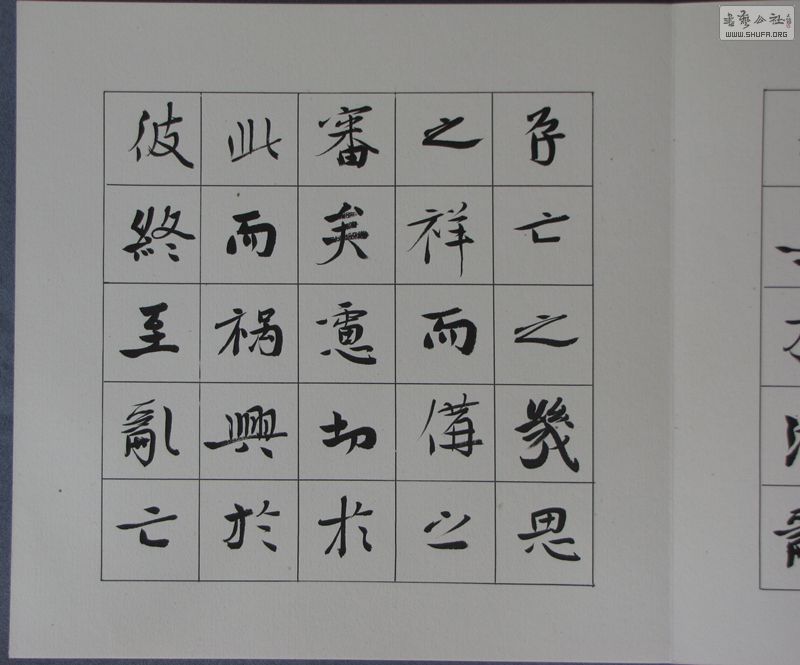 存亡之幾思
之祥而備之
審矣慮切於
此而禍興於
彼終至亂亡
書藝公社
WWW.SHUFA.ORG